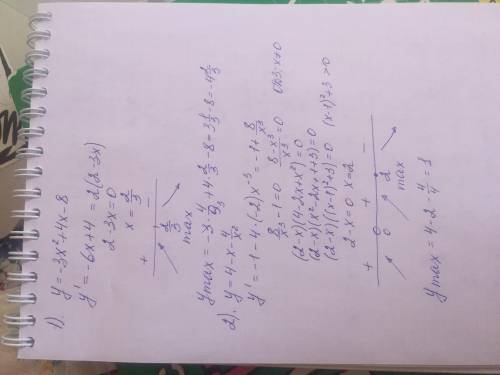 1). y = -3x² + 4x - 8
y' = -6x + 4 = 2(2-3x)
2 - 3x = 0
x = 2/3
+ 2/3 -
max
ymax = -3·4/9 + 4·2/3 - 8 = 
2). y = 4 - x - 4/x²
y' = -1 - 4·(-2)x⁻³ = -1 + 8/x³
8/x³ - 1 = 0 (8-x³)/x³ = 0 ОДЗ: x≠0
(2-x)(4-2x+x²) = 0
(2-x)(x²-2x+1+3) = 0
(2-x)((x-1)²+3) = 0 (x-1)²+3 > 0
2-x = 0 x = 2
+ 0 + 2 -
max
ymax = 4 - 2 - 4/4 = 1